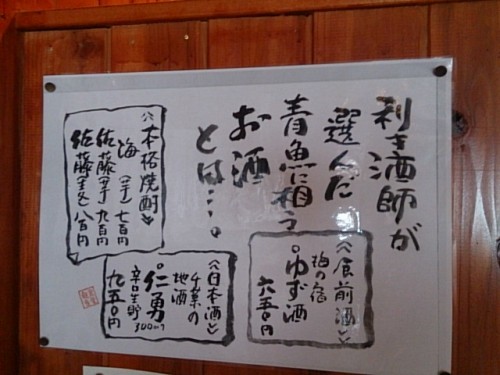 利き酒師が
選んだ
青魚に相う
お酒
とは…。
《食前酒》
梅の宿
ゆず酒
六五〇円
《日本酒》
千葉の
地酒
仁勇
辛口生貯
300ml
九五〇円
《本格焼酎》
海(芋)七百円
佐藤(芋)九百円
佐藤(麦)八百円